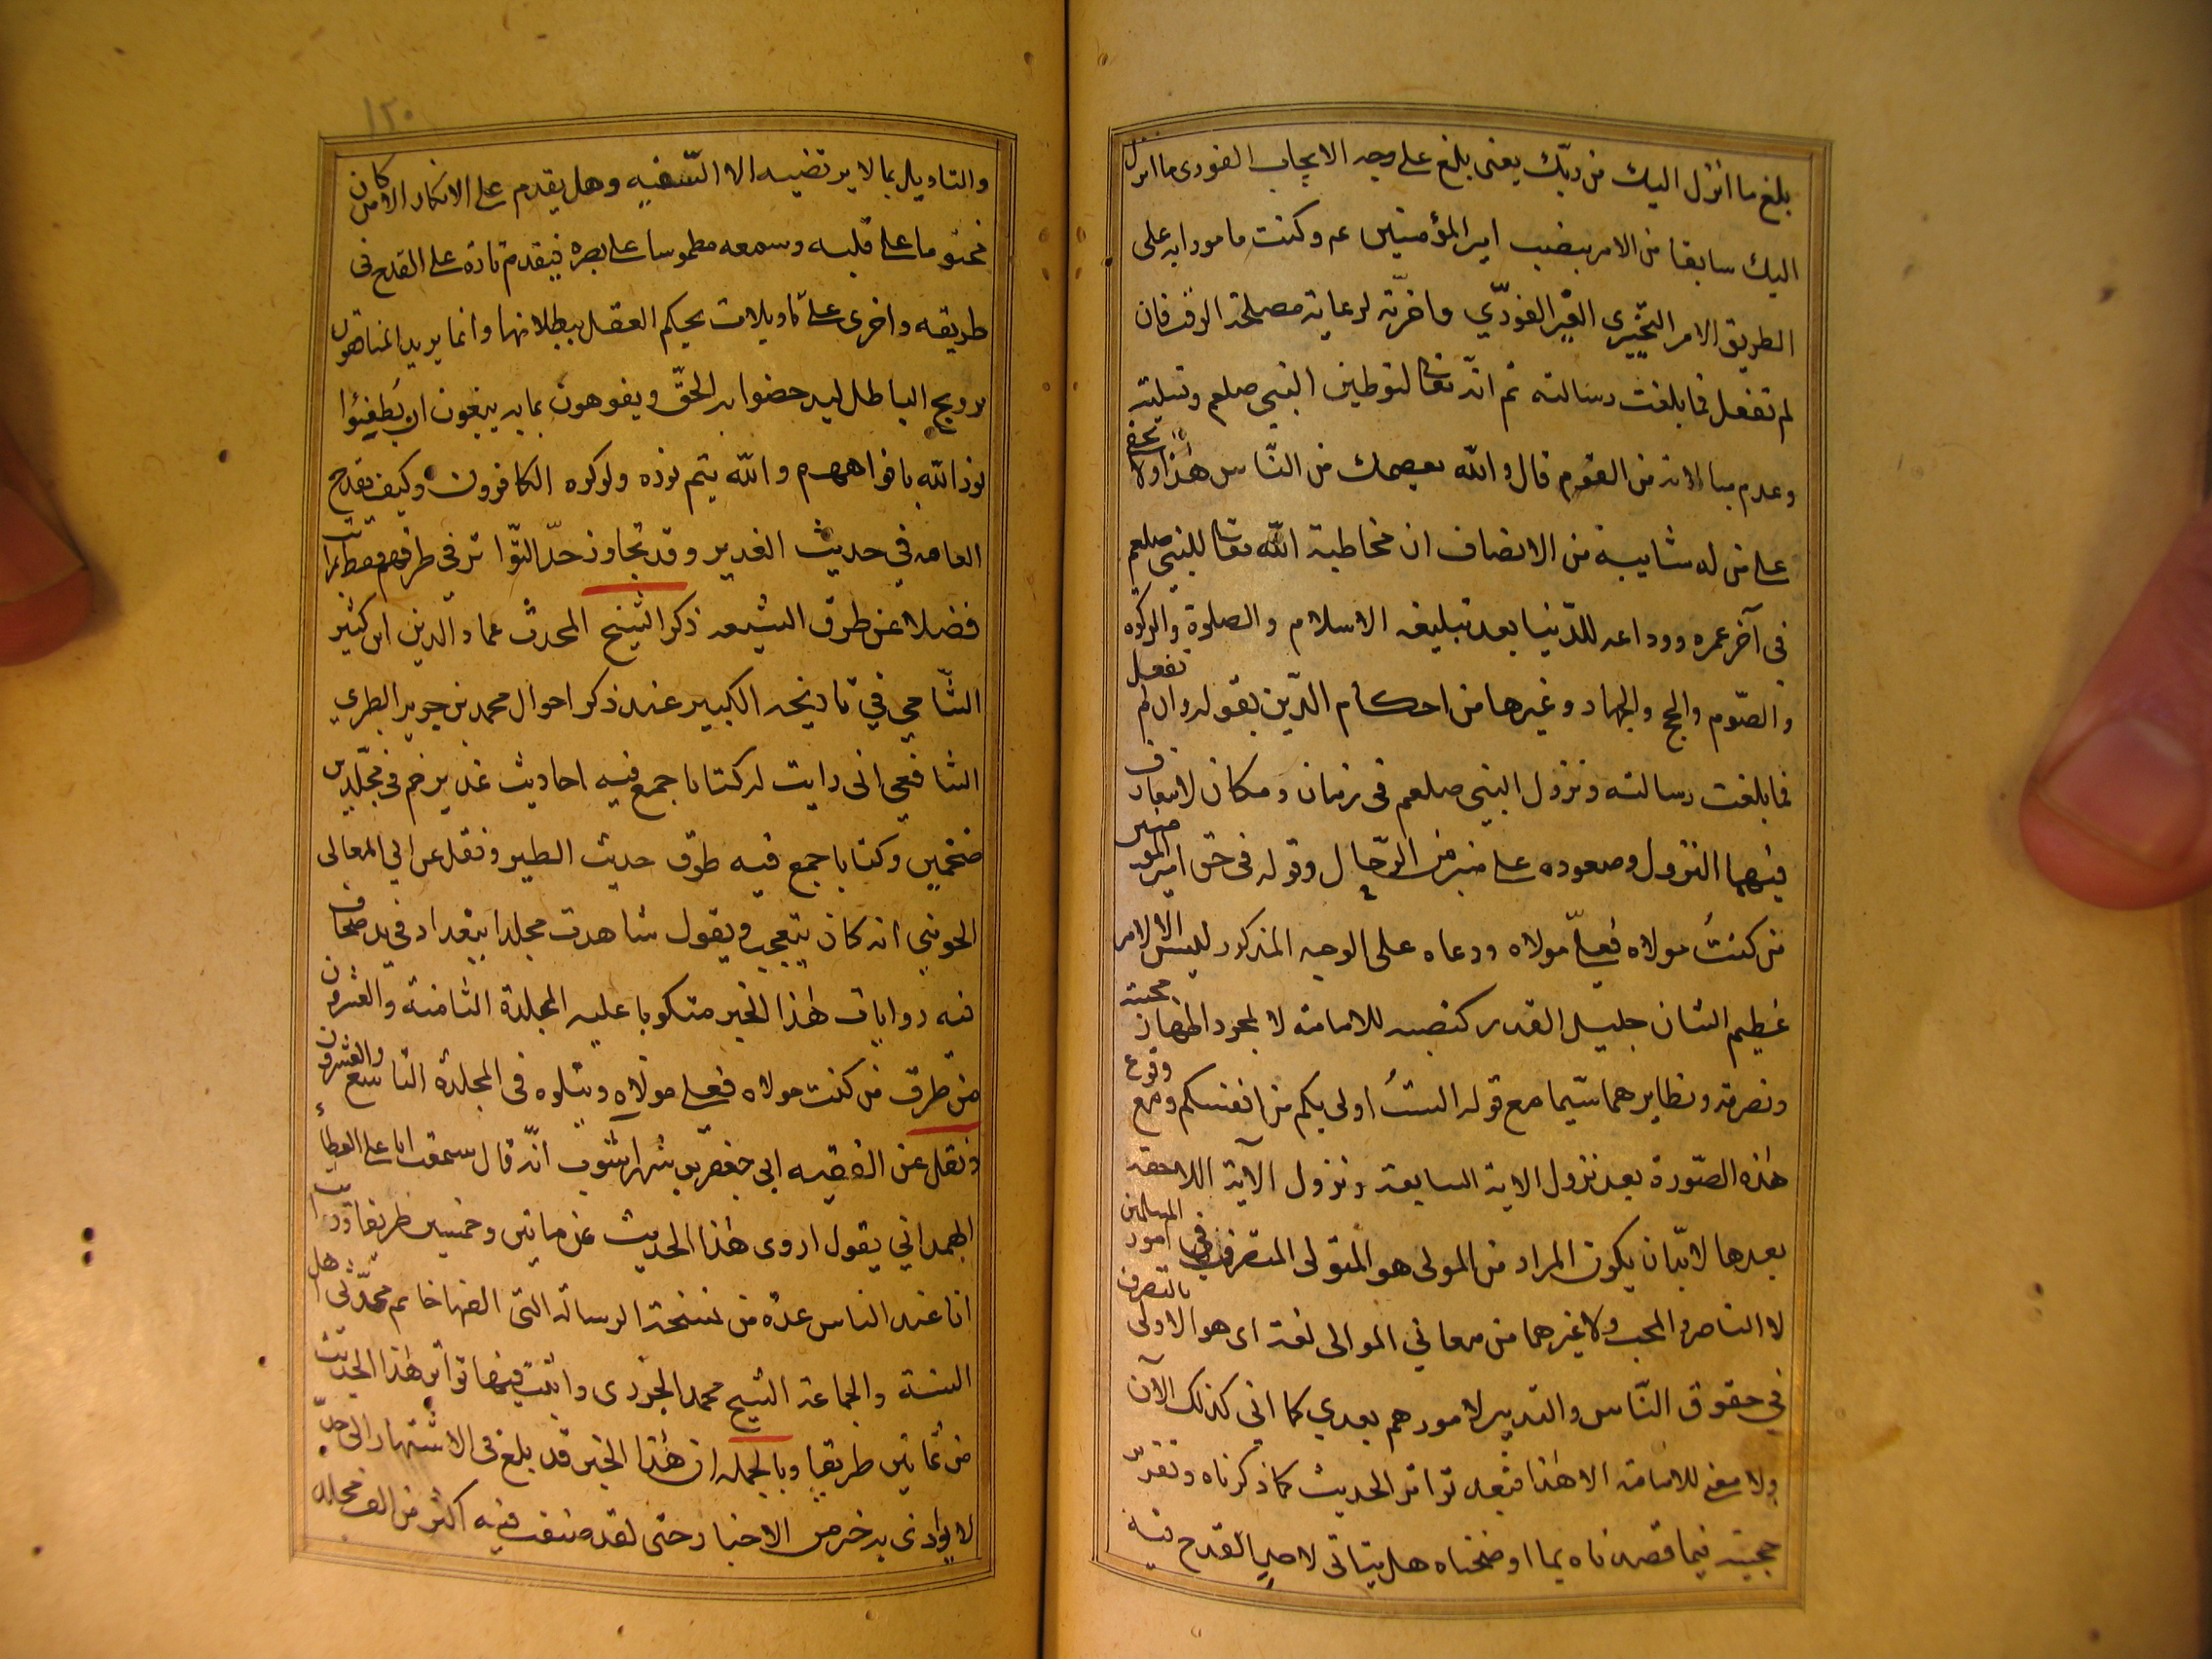 بلغ ما انزل اليك من ربّك يعنى بلغ على وجه الايجاب الفورى ما انزل
اليك سابقا من الامر بنصب امير المؤمنين عم وكنت مامورا به على
الطريق الامر التخييرى الغير الفورّي واخرّته لرعاية مصلحة الوقت فان
لم تفعل فما بلغت رسالته ثم انّه تعالى لتوطين النبى صلعم وتسليته
وعدم مبالاته من القوم قال والله يعصمك من النّاس هذا ولا يخفى
على من له شايبة من الانصاف ان مخاطبة الله تعالى للنبى صلعم
فى آخر عمره ووداعه للدّنيا بعد تبليغه الاسلام والصلوة والزكوة
والصّوم والحج والجهاد وغيرها من احكام الدّين بقوله وان لم تفعل
فما بلغت رسالته ونزول النبى صلعم فى زمان ومكان لا يتعارف
فيهما النزول وصعوده على منبر من الرّحال وقوله فى حق امير المؤمنين
من كنتُ مولاه فعلىّ مولاه ودعاه على الوجه المذكور ليس الا لامر
عظيم الشان جليل القدر كنصبه للامامة لا لمجرد اظهار محبته
ونصرته ونظايرهما سيّما مع قوله الستُ اولى بكم من انفسكم ومع وقوع
هذه الصّورة بعد نزول الاية السابقة ونزول الآية اللاحقة
بعدها لا بدّ ان يكون المراد من المولى هو المتولى المتصرف فى امور المسلمين
لا الناصر والمحب ولا غيرهما من معاني الموالى لغة اى هو الاولى بالتصرف
في حقوق النّاس والتدبير لامورهم بعدي كما انى كذلك الآن
ولا معنى للامامة الا هذا فبعد تواتر الحديث كما ذكرناه وتقرّر
حجيته فيما قصدناه بما اوضحناه هل يتاتى لاحد القدح فيه
١٢٠
والتاويل بما لا يرتضيه الا السّفيه وهل يقدم على الانكار الا من كان
مختوما على قلبه وسمعه مطموسا على بصره فيقدم تارة على القدح فى
طريقه واخرى على تاويلات يحكم العقل ببطلانها وانما يريد المناقضون
ترويج الباطل ليدحضوا به الحقّ ويفوهون بما به يبغون ان يُطفِئوا
نور الله بافواههم والله يتم نوره ولو كره الكافرون وكيف يقدح
العامه في حديث الغدير وقد تجاوز حدّ التّواتر فى طرقهم ومصطلحاتهم
فضلا عن طرق الشيعه ذكر الشيخ المحدث عماد الدين ابن كثير
الشّامي في تاريخه الكبير عند ذكر احوال محمد بن جرير الطبري
الشافعي انى رايت له كتابا جمع فيه احاديث غدير خم فى مجلّدين
ضخمين وكتابا جمع فيه طرق حديث الطير ونقل عن ابي المعالى
الجوينى انه كان يتعجب ويقول شاهدت مجلدا ببغداد في يد صحاف
فيه روايات هذا الخبر مكتوبا عليه المجلدة الثامنة والعشرون
من طرق من كنت مولاه فعلى مولاه ويتلوه فى المجلدة التاسع والعشرون
ونقل عن الفقيه ابى جعفر بن شهراشوب انّه قال سمعت ابا على العطاء
الهمداني يقول اروى هذا الحديث عن ماتين وخمسين طريقا ورايت
انا عند الناس عدة من نسخة الرسالة التى الفها خاتم محدّثى اهل
السنة والجماعة الشيخ محمد الجزرى واثبت فيها تواتر هذا الحديث
من ثمانين طريقا وبالجمله ان هذا الخبر قد بلغ فى الاشتهار الى حدّ
لا يوازى به خبر من الاخبار حتى لقد صنف فيه اكثر من الف مجلد